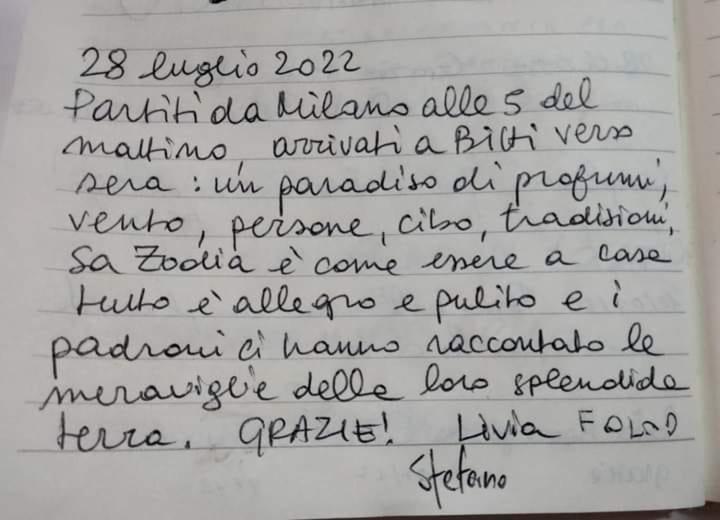 28 luglio 2022
Partiti da Milano alle 5 del
mattino, arrivati a Bitti verso
sera: un paradiso di profumi,
vento, persone, cibo, tradizioni,
Sa Zodia è come essere a casa
tutto è allegro e pulito e i
padroni ci hanno raccontato le
meraviglie della loro splendida
terra. GRAZIE! Livia
Stefano